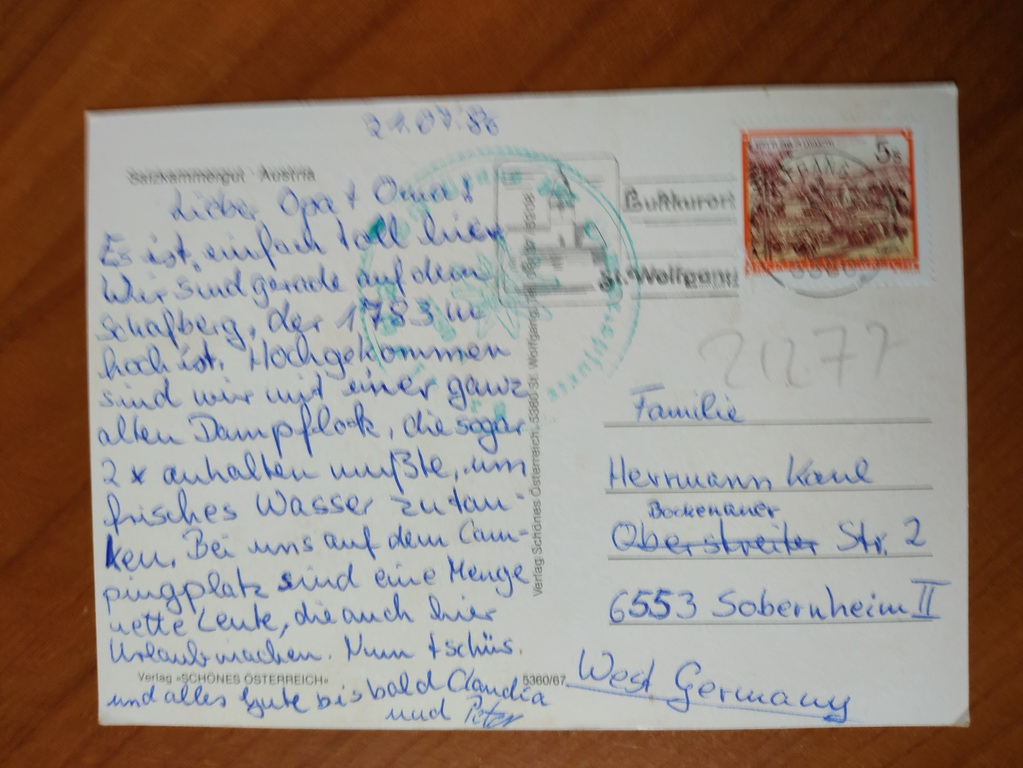 21.07.88
Salzkammergut · Austria
Lieber Opa + Oma!
Es ist einfach toll hier
Wir sind gerade auf dem
Schafberg, der 1783 m
hoch ist. Hochgekommen
sind wir mit einer ganz
alten Dampflock, die sogar
2 x anhalten mußte, um
frisches Wasser zu tan-
ken. Bei uns auf dem Cam-
pingplatz sind eine Menge
nette Leute, die auch hier
Urlaub machen. Nun tschüs.
und alles Gute bis bald Claudia
und Peter
Verlag »SCHÖNES ÖSTERREICH«
5360/67
Verlag Schönes Österreich, 5360 St. Wolfgang
Luftkurort
St. Wolfgang
5s
21277
Familie
Herrmann Kaul
Bockenauer
Oberstreiter Str. 2
6553 Sobernheim II
West Germany